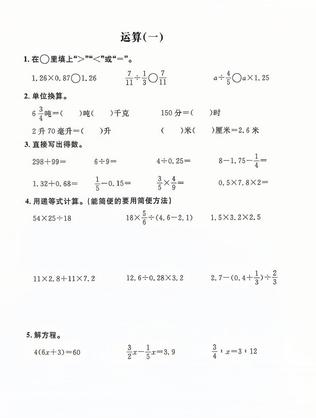 运算(一)
1.在○里填上“>”“<”或“=”。
1.26×0.87○1.26 7/11÷1/3○7/11 a÷4/5○a×1.25
2.单位换算。
6 3/4吨=( )吨( )千克 150分=( )时
2升70毫升=( )升 ( )米( )厘米=2.6米
3.直接写出得数。
298+99= 6÷9= 4÷0.25= 8-1.75-1/4=
1.32+0.68= 1/5-0.15= 3/5×4/9= 0.5×7.8×2=
4.用递等式计算。(能简便的要用简便方法)
54×25÷18 16×5/6÷(4.6-2.1) 1.5×3.2×2.5
11×2.8+11×7.2 12.6÷0.28×3.2 2.7-(0.4+1/3)÷2/3
5.解方程。
4(6x+3)=60 3/2x-1/5x=3.9 3/4:x=3:12